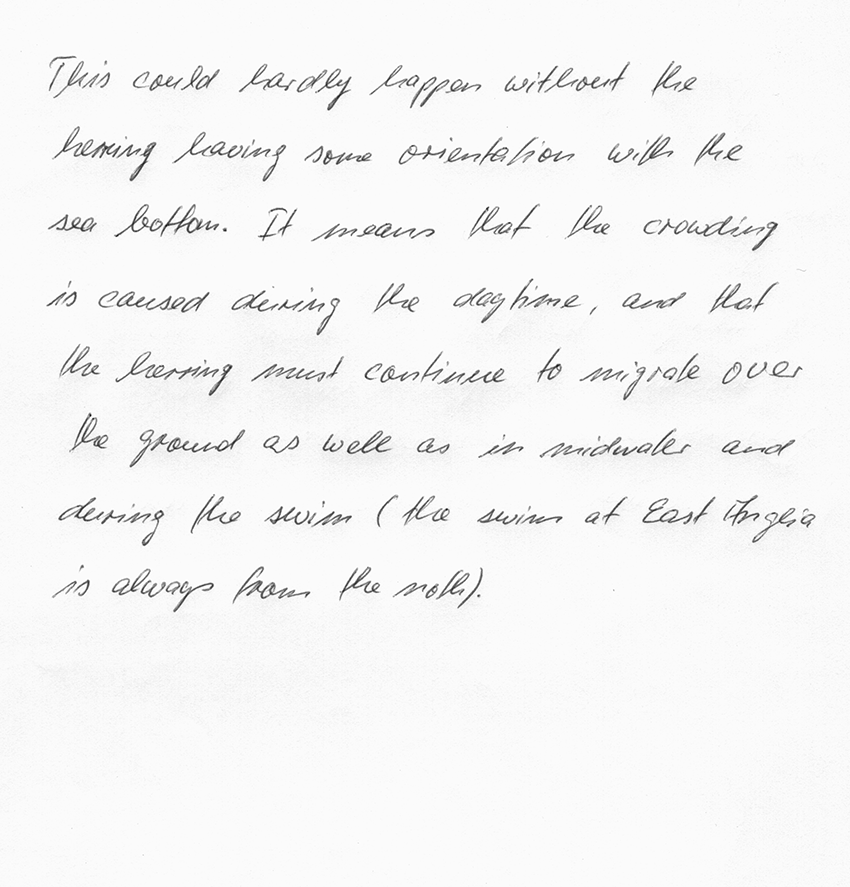 This could hardly happen without the
herring having some orientation with the
sea bottom. It means that the crowding
is caused during the daytime, and that
the herring must continue to migrate over
the ground as well as in midwater and
during the swim (the swim at East Anglia
is always from the noth).